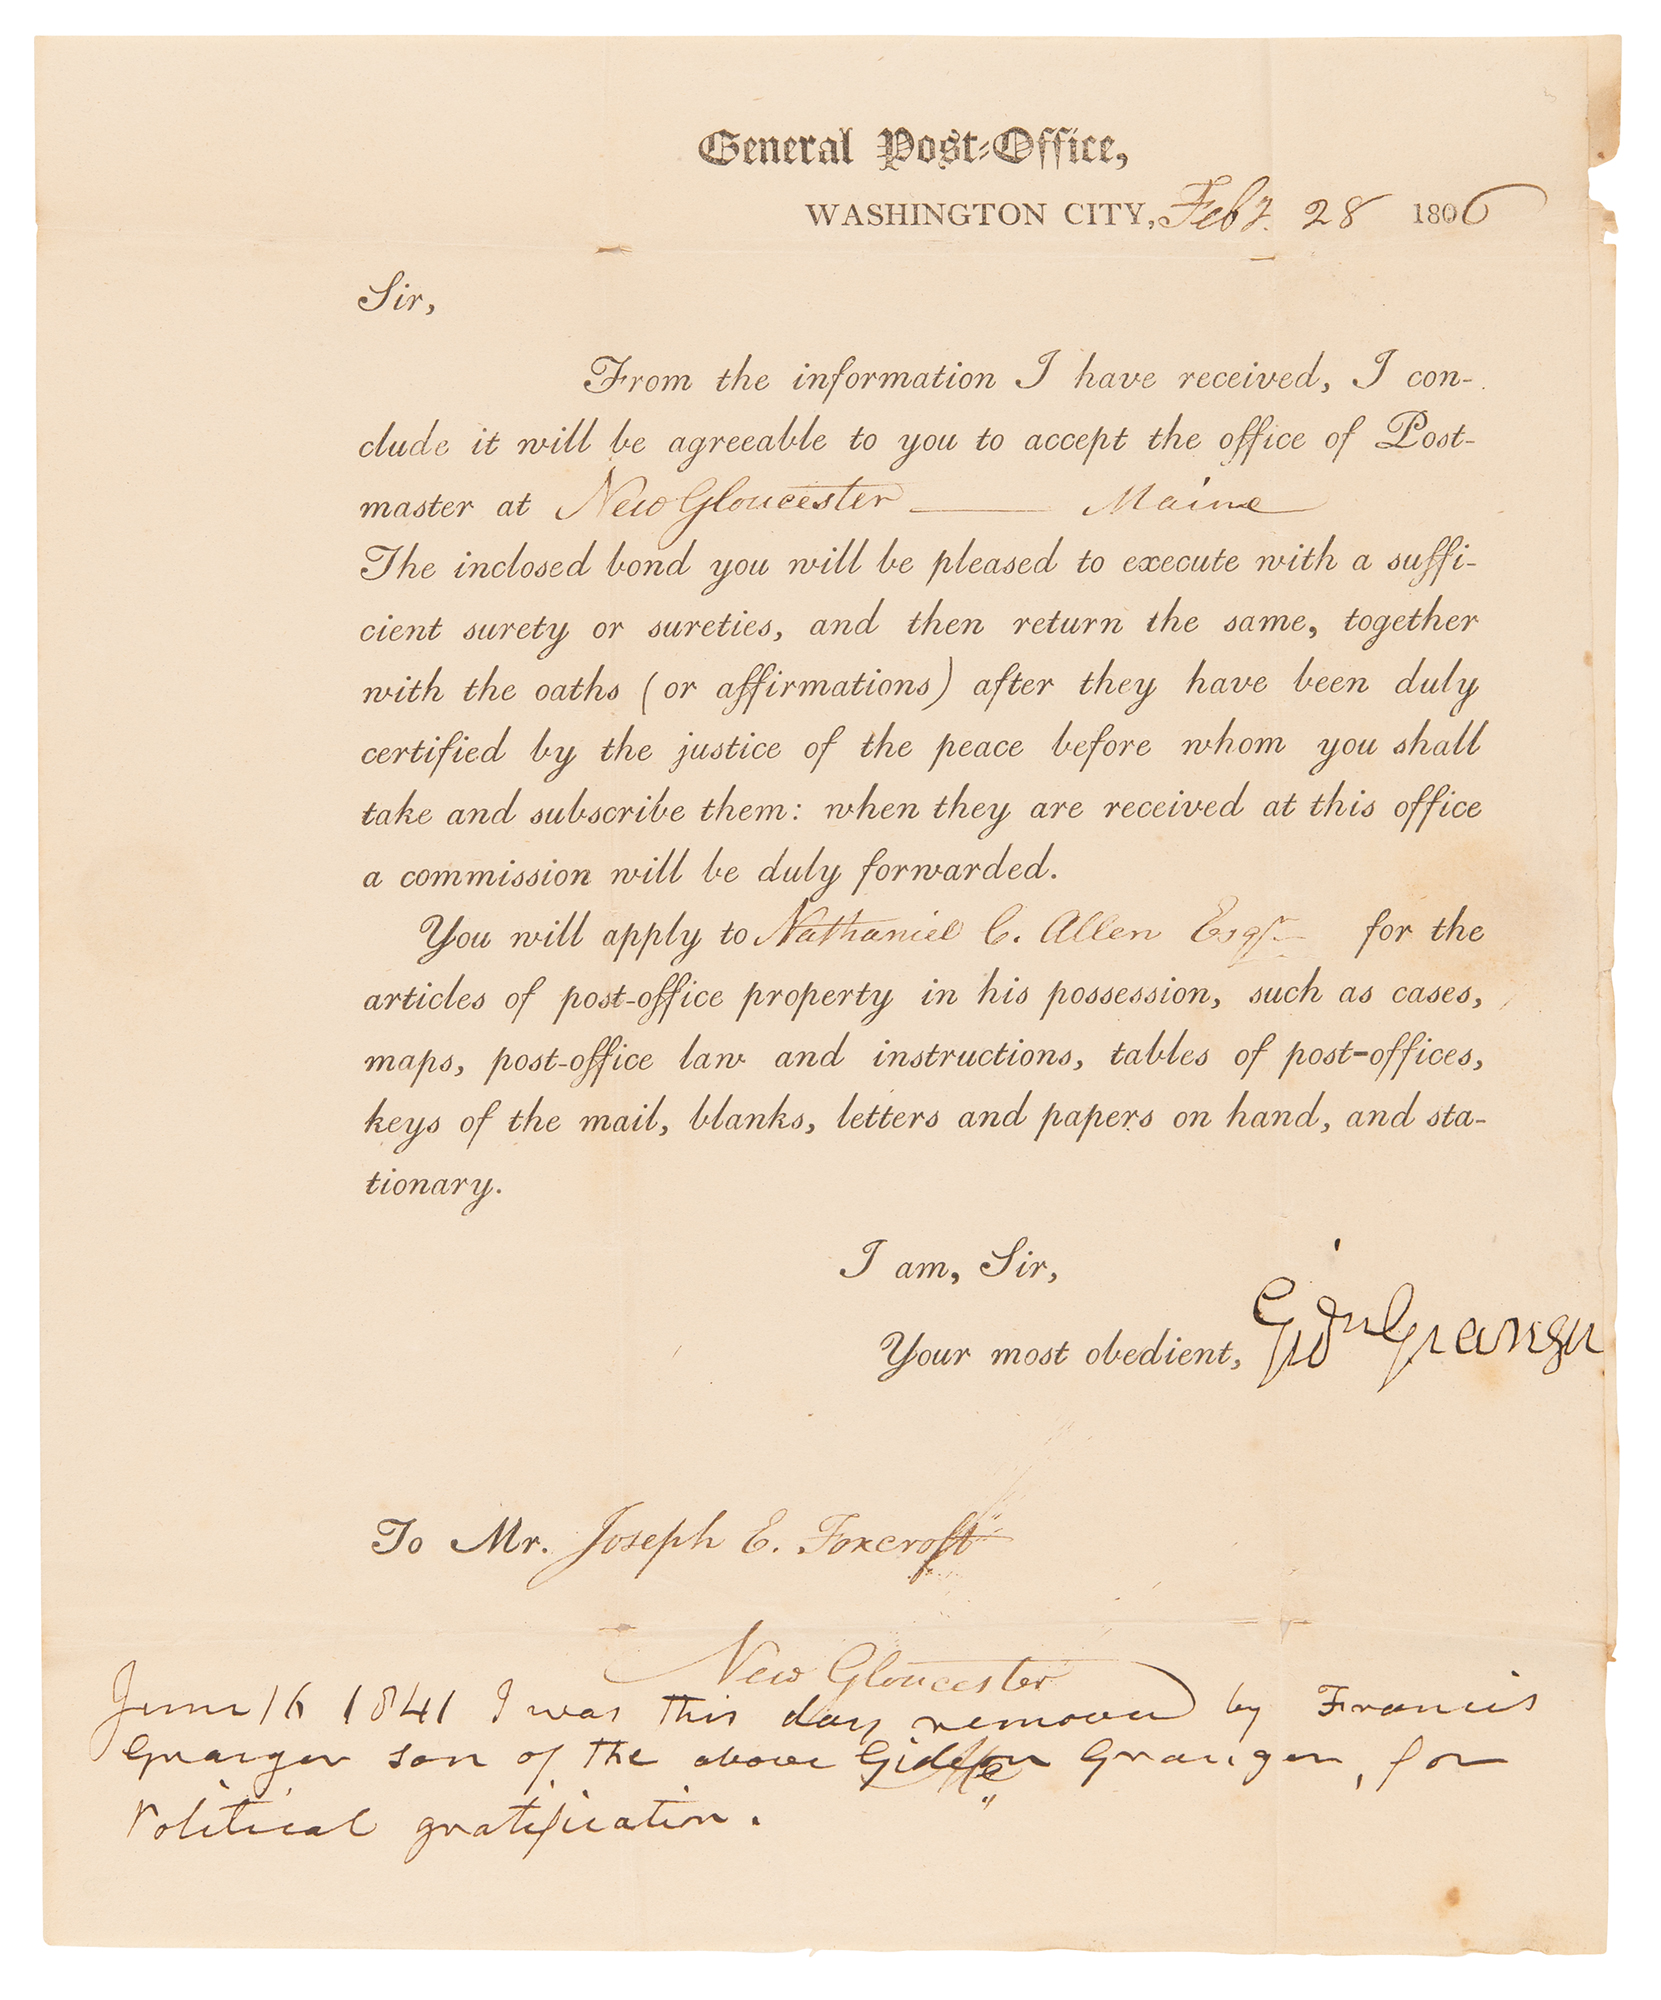 General Post-Office,
WASHINGTON CITY, Feby. 28 1806
Sir,
From the information I have received, I con-
clude it will be agreeable to you to accept the office of Post-
master at New Gloucester — Maine
The inclosed bond you will be pleased to execute with a suffi-
cient surety or sureties, and then return the same, together
with the oaths (or affirmations) after they have been duly
certified by the justice of the peace before whom you shall
take and subscribe them: when they are received at this office
a commission will be duly forwarded.
You will apply to Nathaniel C. Allen Esqr. for the
articles of post-office property in his possession, such as cases,
maps, post-office law and instructions, tables of post-offices,
keys of the mail, blanks, letters and papers on hand, and sta-
tionary.
I am, Sir,
Your most obedient, Gidn Granger
To Mr. Joseph E. Foxcroft
New Gloucester
June 16 1841 I was this day removed by Francis
Granger son of the above Gideon Granger, for
Political gratification.
Me